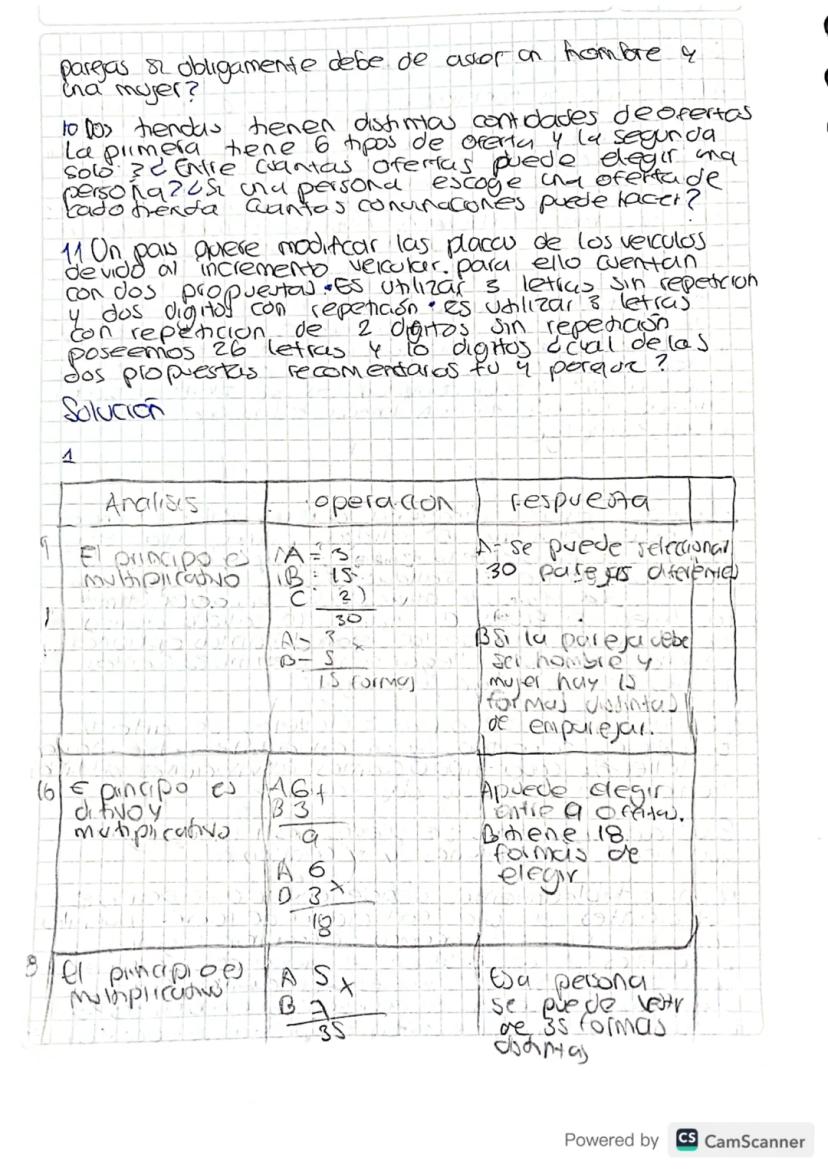 parejas si obligamente debe de aser on hombre y
una mujer?
10 Dos tiendas tienen distintas contidades de ofertas
La primera tiene 6 tipos de oferta y la segunda
solo 3 ¿ Entre cuantas ofertas puede elegir una
persona? ¿Si una persona escoge una oferta de
cada tienda cuantas convinaciones puede hacer?
11 Un pais quiere modificar las placas de los veiculos
devido al incremento veicular. para ello cuentan
con dos propuestas • ES utilizar 3 letras sin repeticion
y dos digitos con repetición • es utilizar 3 letras
con repeticion de 2 digitos sin repetición
poseemos 26 letras y 10 digitos ¿cual de las
dos propuestas recomendarias tu y porque?
Solución
1
Analisis operacion respuesta
9 El principo es multiplicativo
A= 3
B= 15
C 2)
30
A= 3 x
B- 5
15 formas
A- se puede seleccionar
30 parejas diferentes
B Si la pareja debe
ser hombre y
mujer hay 15
formas distintas
de emparejar.
10 E principo es
ditivo y
multiplicativo
A 6 +
B 3
9
A 6
D 3 x
18
A puede elegir
entre 9 ofertas.
B tiene 18
formas de
elegir
8 El principio es
multiplicativo
A 5 x
B 7
35
Esa persona
se puede vestir
de 35 formas
distintas
Powered by CS CamScanner